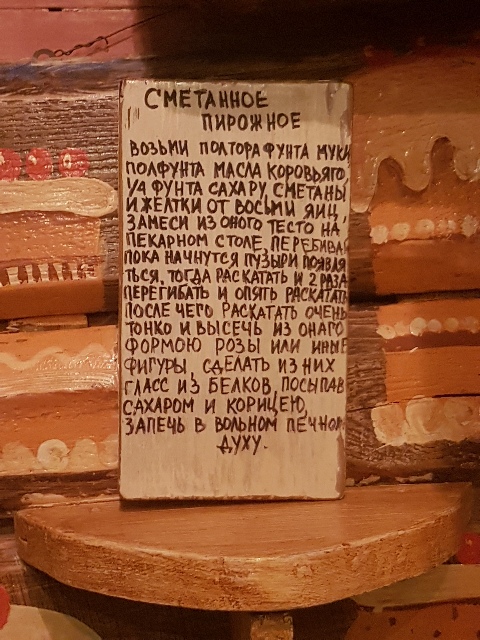 СМЕТАННОЕ
ПИРОЖНОЕ
ВОЗЬМИ ПОЛТОРА ФУНТА МУКИ
ПОЛФУНТА МАСЛА КОРОВЬЯГО,
1/4 ФУНТА САХАРУ, СМЕТАНЫ
И ЖЕЛТКИ ОТ ВОСЬМИ ЯИЦ,
ЗАМЕСИ ИЗ ОНОГО ТЕСТО НА
ПЕКАРНОМ СТОЛЕ, ПЕРЕБИВАЯ
ПОКА НАЧНУТСЯ ПУЗЫРИ ПОЯВЛЯ
ТЬСЯ, ТОГДА РАСКАТАТЬ И 2 РАЗА
ПЕРЕГИБАТЬ И ОПЯТЬ РАСКАТАТЬ
ПОСЛЕ ЧЕГО РАСКАТАТЬ ОЧЕНЬ
ТОНКО И ВЫСЕЧЬ ИЗ ОНАГО
ФОРМОЮ РОЗЫ ИЛИ ИНЫЕ
ФИГУРЫ, СДЕЛАТЬ ИЗ НИХ
ГЛАСС ИЗ БЕЛКОВ, ПОСЫПАВ
САХАРОМ И КОРИЦЕЮ,
ЗАПЕЧЬ В ВОЛЬНОМ ПЕЧНОМ
ДУХУ.